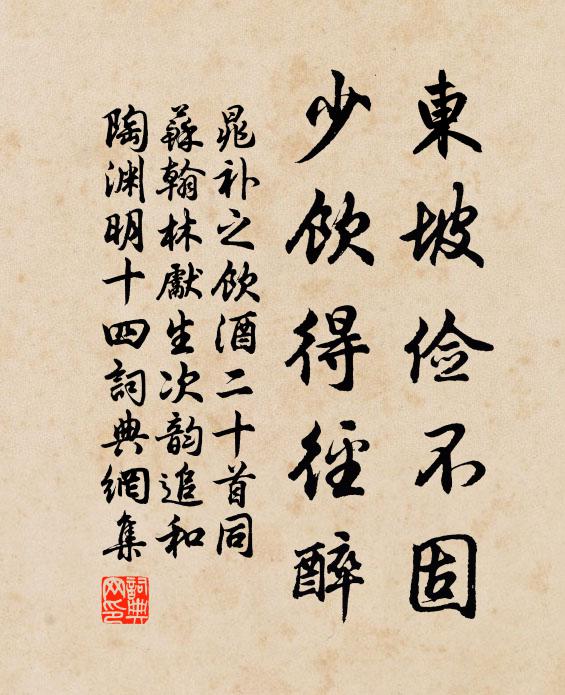 東坡俭不固
少饮得径醉
晁补之饮酒二十首同
蘇翰林獻生次韵追和
陶渊明十四詞典網集
詞典网印